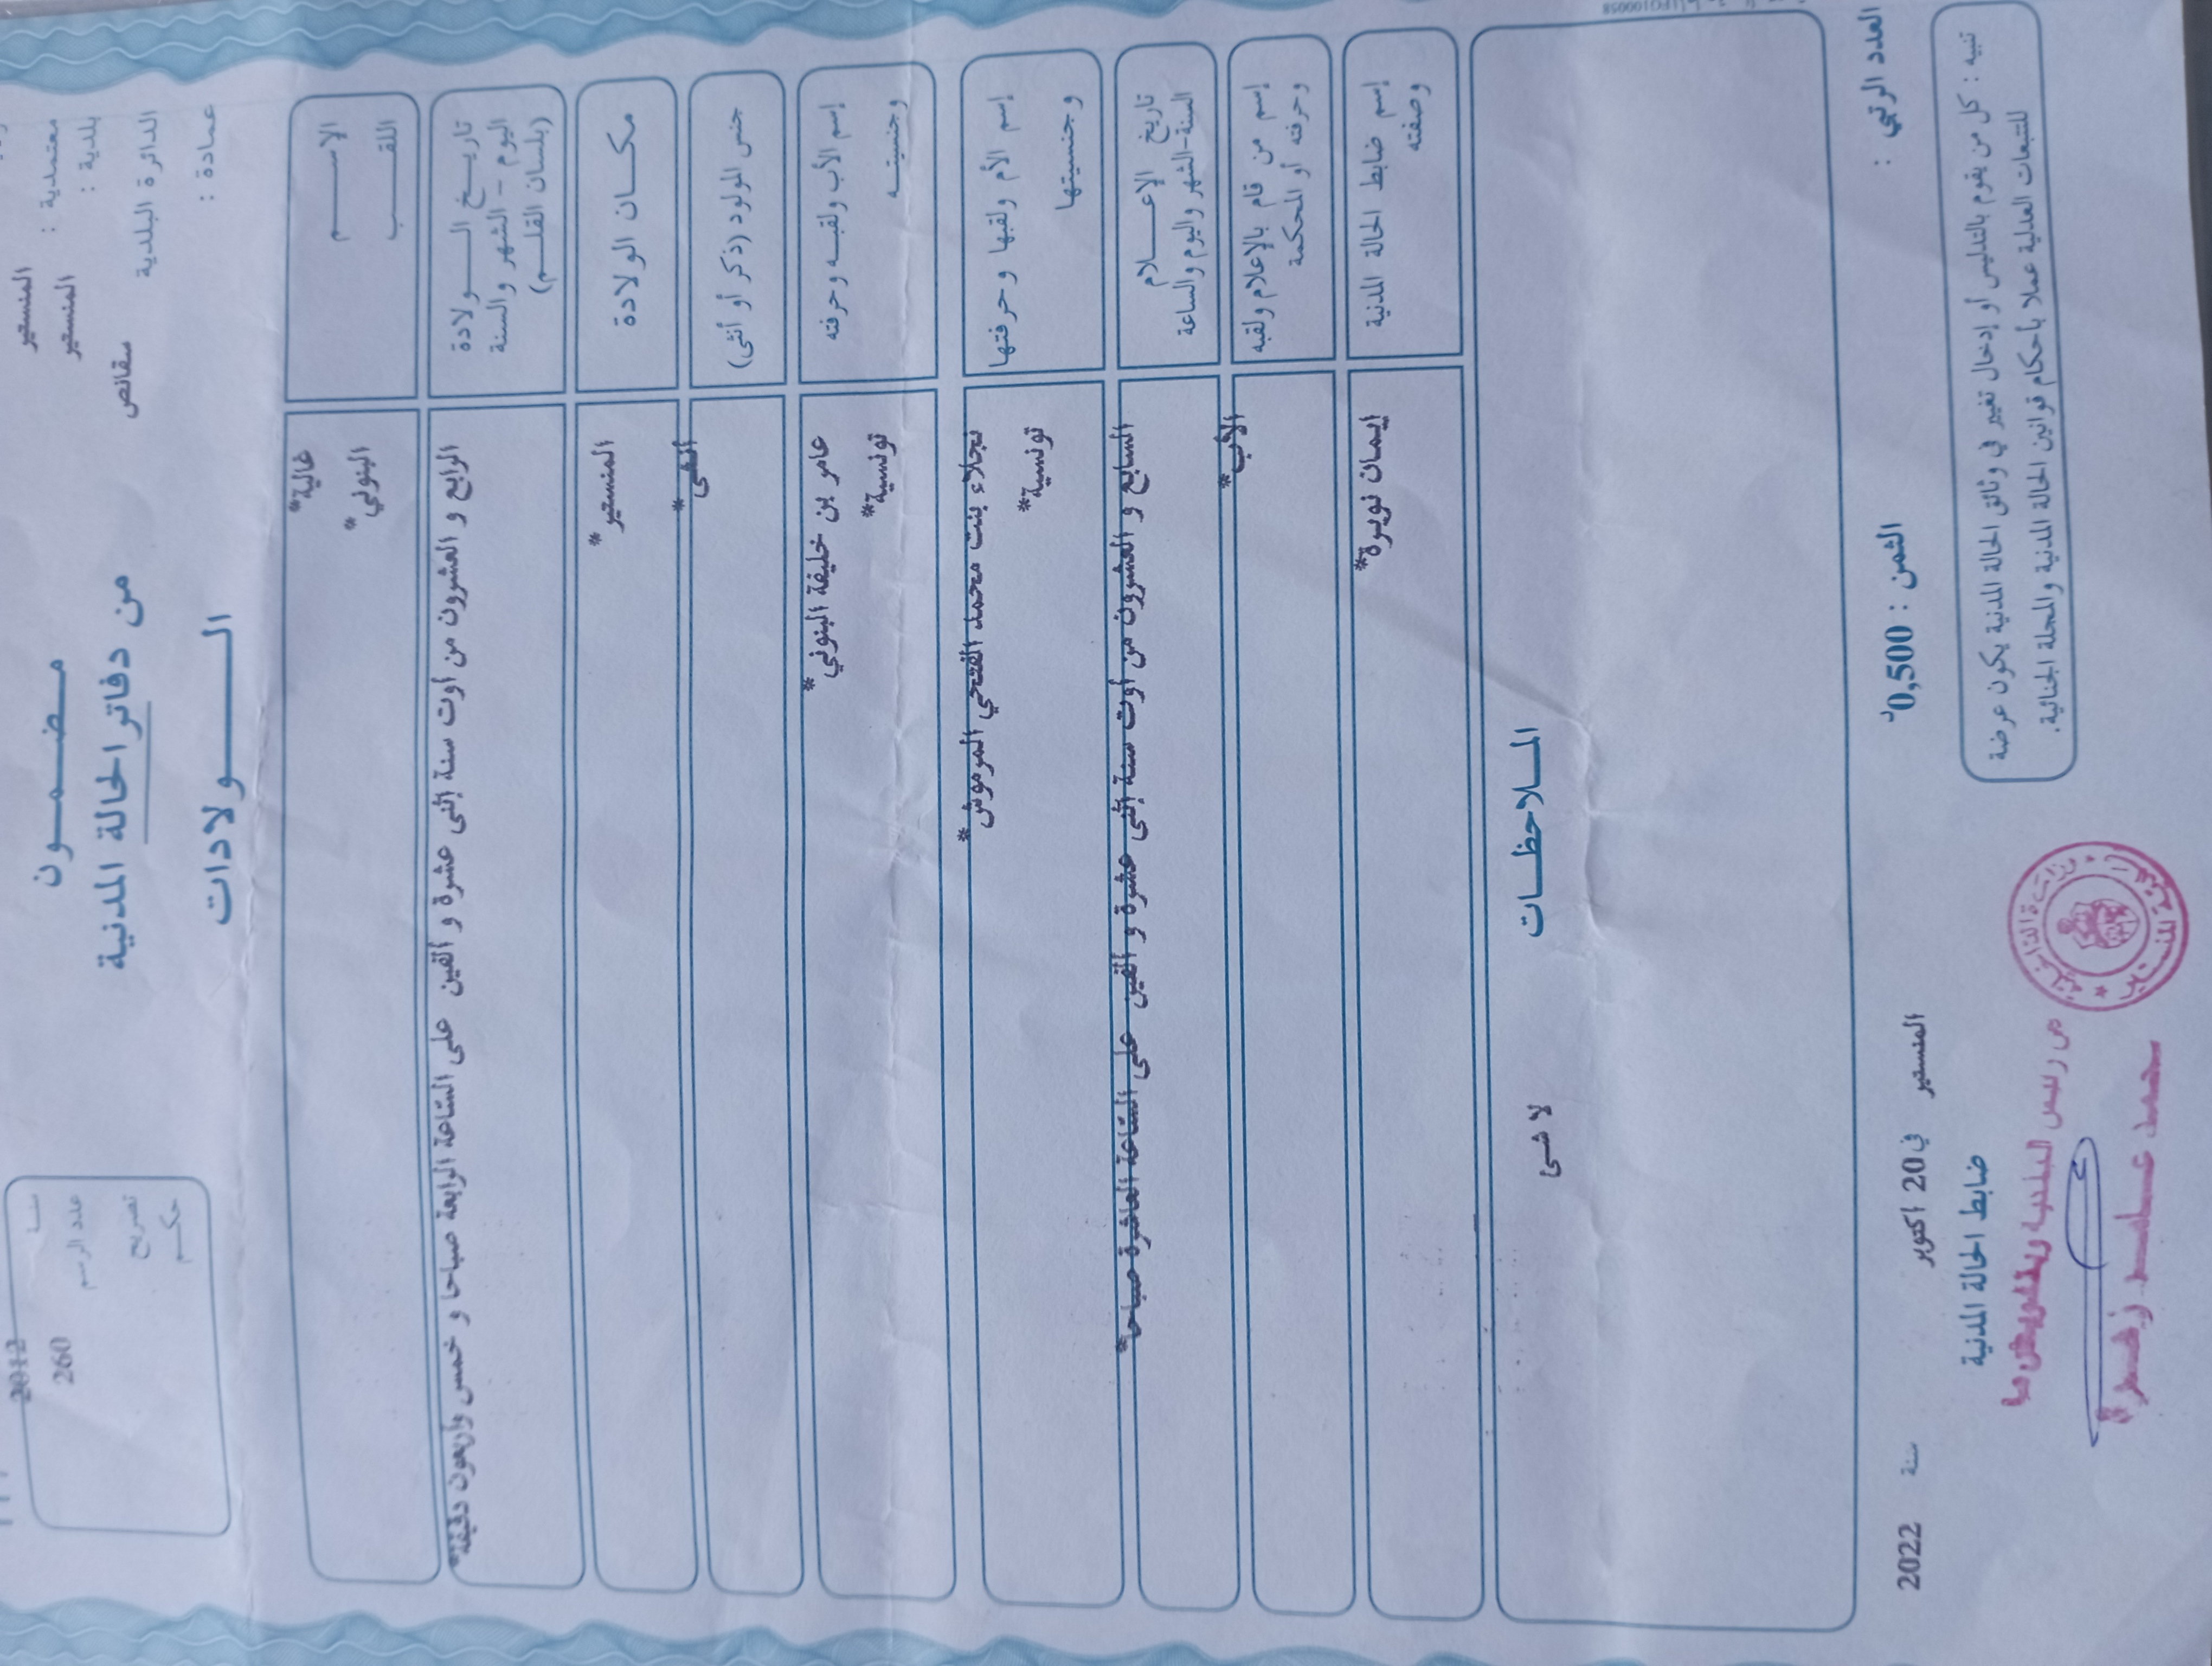 المنستير
معتمدية : المنستير
بلدية :
الدائرة البلدية سقانص
عمادة :
مضمون
من دفاتر الحالة المدنية
الولادات
سنة 2012
عدد الرسم 260
تصريح
حكم
الإسم غالية*
اللقب البنولي*
تاريخ الولادة
اليوم - الشهر والسنة
(بلسان القلم)
الرابع و العشرون من أوت سنة إثنى عشرة و ألفين على السّاعة الرابعة صباحا و خمس وأربعون دقيقة*
مكان الولادة المنستير*
جنس المولود (ذكر أو أنثى) أنثى*
إسم الأب ولقبه وحرفته عامر بن خليفة البنولي*
وجنسيته تونسية*
إسم الأم ولقبها وحرفتها نجلاء بنت محمد الفتحي المرموش*
وجنسيتها تونسية*
تاريخ الإعلام
السنة-الشهر واليوم والساعة
السابع و العشرون من أوت سنة إثنى عشرة و ألفين على السّاعة العاشرة صباحا*
إسم من قام بالإعلام ولقبه الأب*
وحرفته أو المحكمة
إسم ضابط الحالة المدنية ايمان نويرة*
وصفته
الملاحظات
لا شئ
العدد الرتبي :
الثمن : 0,500د
المنستير في 20 اكتوبر سنة 2022
ضابط الحالة المدنية
تنبيه : كل من يقوم بالتدليس أو إدخال تغيير في وثائق الحالة المدنية يكون عرضة
للتتبعات العدلية عملا بأحكام قوانين الحالة المدنية والمجلة الجنائية.